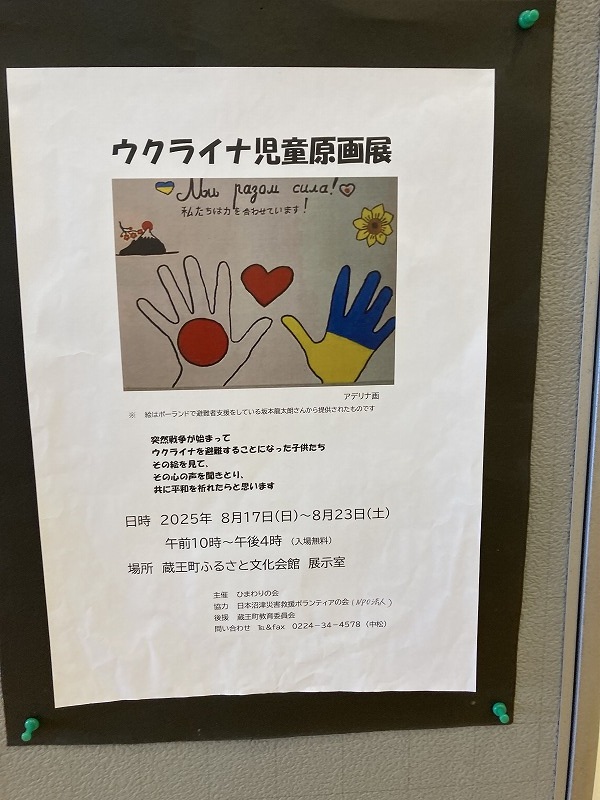 ウクライナ児童原画展
Ми разом сила!
私たちは力を合わせています!
アデリナ画
※ 絵はポーランドで避難者支援をしている坂本龍太朗さんから提供されたものです
突然戦争が始まって
ウクライナを避難することになった子供たち
その絵を見て、
その心の声を聞きとり、
共に平和を祈れたらと思います
日時 2025年 8月17日(日)～8月23日(土)
午前10時～午後4時 (入場無料)
場所 蔵王町ふるさと文化会館 展示室
主催 ひまわりの会
協力 日本沼津災害救援ボランティアの会(NPO法人)
後援 蔵王町教育委員会
問い合わせ ℡&fax 0224-34-4578 (中松)